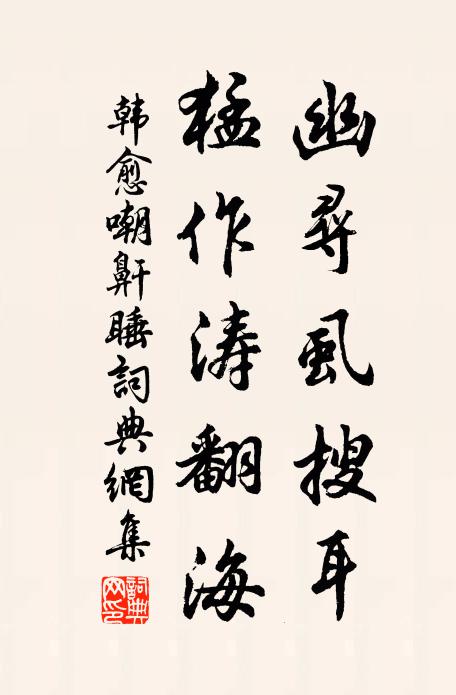 幽尋虱搜耳
猛作涛翻海
韩愈嘲鼾睡詞典網集
詞典
网印